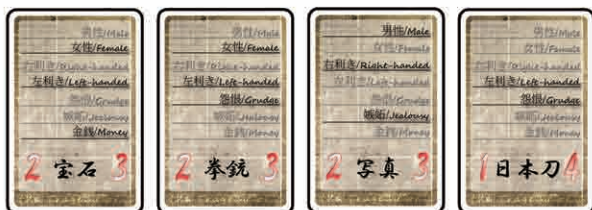 男性/Male
女性/Female
右利き/Right-handed
左利き/Left-handed
怨恨/Grudge
嫉妬/Jealousy
金銭/Money
2 宝石 3
男性/Male
女性/Female
右利き/Right-handed
左利き/Left-handed
怨恨/Grudge
嫉妬/Jealousy
金銭/Money
2 拳銃 3
男性/Male
女性/Female
右利き/Right-handed
左利き/Left-handed
怨恨/Grudge
嫉妬/Jealousy
金銭/Money
2 写真 3
男性/Male
女性/Female
右利き/Right-handed
左利き/Left-handed
怨恨/Grudge
嫉妬/Jealousy
金銭/Money
1 日本刀 4